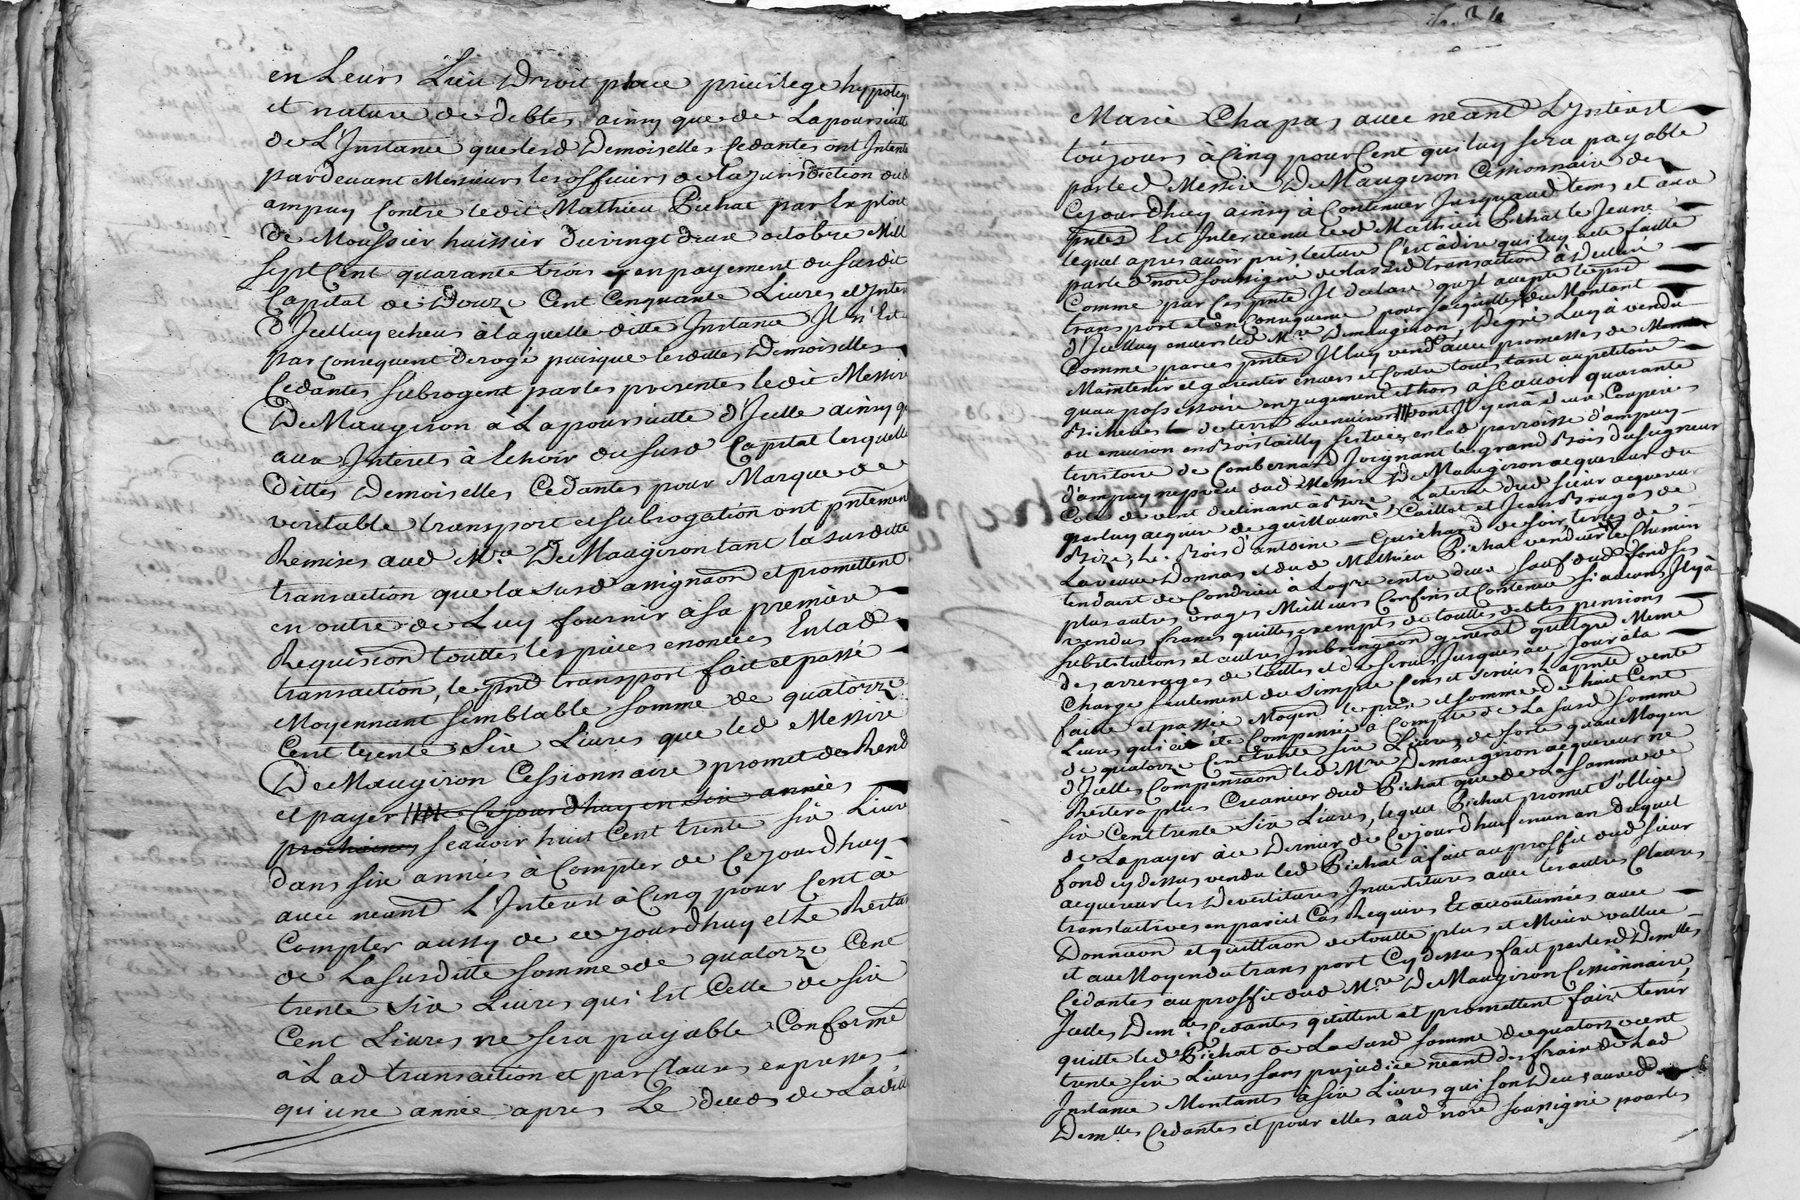 en Leurs Lieu Droit place privilege hypoteq
et nature de debtes, ainsy que de La poursuitte
de L'Instance que lesd Demoiselles Cedantes ont Intenté
pardevant Messieurs les officiers de la jurisdiction dud
ampuy Contre ledit Mathieu Pichat par Exploit
de Moussier huissier du vingt deux octobre Mill
sept Cent quarante trois en payement du susdit
Capital de Douze Cent Cinquante Livres et Inter
d'Icelluy echeus à laquelle ditte Instance Il n'Est
par Consequent derogé puisque lesdittes Demoiselles
Cedantes subrogent par les presentes ledit Messire
De Maugiron à La poursuitte d'Icelle ainsy qu
aux Interets à Echoir du susd Capital lesquelles
dittes Demoiselles Cedantes pour Marque de
veritable transport et subrogation ont pntement
Remises aud Mre De Maugiron tant la susditte
transaction que la susd assignaon et promettent
en outre de Luy fournir à sa premiere
Requision touttes les pieces enoncées En lad
transaction, le pnt transport fait et passé
Moyennant semblable somme de quatorze
Cent trente Six Livres que led Messire
De Maugiron Cessionnaire promet de Rend
et payer Cejourdhuy en six années
prochaines scavoir huit Cent trente six Livre
dans six années à Compter de Cejourdhuy
avec neant L'Interest à Cinq pour Cent à
Compter aussy de cejourdhuy et Le Restan
de La susditte somme de quatorze Cent
trente six Livres qui Est Celle de six
Cent Livres ne sera payable Conformé
à Lad transaction et par Clauses expresses
qu'une année apres Le deces de Ladit
Marie Chapas avec neant L'Interest
toujours à Cinq pour Cent qui luy sera payable
par led Messire De Maugiron Cessionnaire de
Cejourdhuy ainsy à Continuer Jusquaud tems et aux
pntes Est Intervenu led Mathieu Pichat le Jeune
lequel apres avoir pris lecture C'est à dire qui luy a eté faitte
par le nore soussigné de lasusd transaction à declaré
Comme par Ces pntes Il declare qu'il accepte le pnt
transport et en Consequence pour s'aquitter du Montant
d'Icelluy envers led Mre Demaugiron, De gré Luy à vendu
Comme par ces pntes Il luy vend avec promesses de
Maintenir et garentir envers et Contre tous tant au petitoire
quau possessoire en jugement et hors à scavoir quarante
Bicherées de terre environ dont Il y en a deux Couperes
ou environ en Bois tailly sçituées en lad parroisse d'ampuy
territoire de Combernard Joignant le grand Bois du seigneur
d'ampuy nepveu dud Messire De Maugiron acquereur du
Coté de vent declinant à Bize, La terre dud sieur acquereur
par luy acquise de guillaume Caillet et Jean Bragas de
Bize, Le Bois d'antoine Guichard de soir, terres de
La veuve Donnas et dud Mathieu Pichat vendeur le Chemin
tendant de Condrieu à Loyre entre deux sauf dud fond ses
plus autres vrages Meilleurs Confins et Contenue si aucuns Il y à
vendus francs quittes exempts de touttes debtes pensions
substitutions et autres Imbringaon general quelque Meme
des arrerages de tailles et du servis Jusques à ce Jour à la
Charge seulement du simple Cens et servis La pnte vente
faitte et passée Moyen le prix et somme de huit Cent
Livres qui à eté Compensée à Compte de La susd somme
de quatorze Cent trente six Livres, de sorte quau Moyen
d'Icelles Compensaon led Mre Demaugiron acquereur ne
Restera plus Creancier dud Pichat que de La somme de
six Cent trente six Livres, lequel Pichat promet s'oblige
de La payer à ce Dernier de Cejourdhuy en un an duquel
fond cy dessus vendu led Pichat à fait au proffit dud sieur
acquereur les Devestitures Investitures avec les autres Clauses
translatives en pareil Cas Requises Et accoutumées avec
Donnaon et quittaon de toutte plus et Moins vallue
et au Moyen du transport Cy dessus fait par lesd Demlles
Cedantes au proffit dud Mre De Maugiron Cessionnaire
Icelles Demlles Cedantes quittent et promettent faire tenir
quitte led Pichat de La susd somme de quatorze cent
trente six Livres sans prejudice neant des frais de Lad
Instance Montants à six Livres qui sont Deus auxd
Demlles Cedantes et pour elles aud nore soussigné pour les